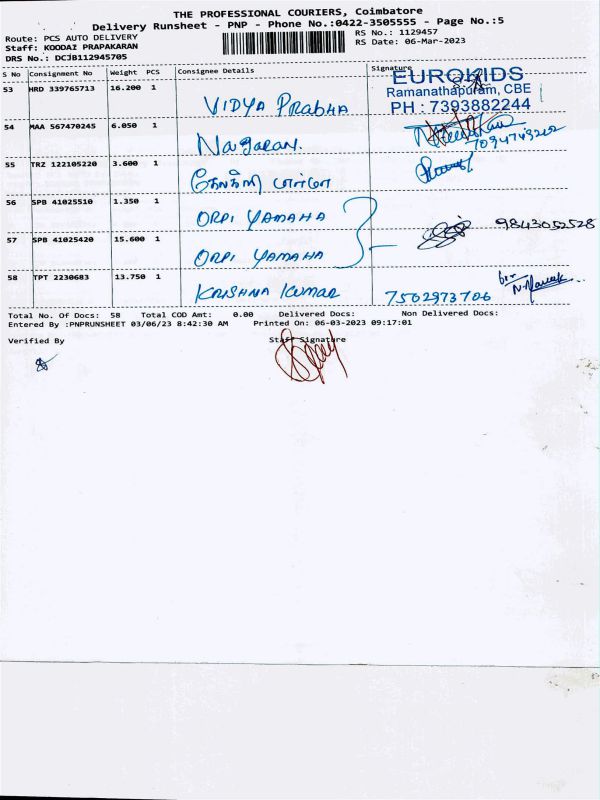 THE PROFESSIONAL COURIERS, Coimbatore
Delivery Runsheet - PNP - Phone No.:0422-3505555 - Page No.:5
Route: PCS AUTO DELIVERY
RS No.: 1129457
Staff: KOODAZ PRAPAKARAN
RS Date: 06-Mar-2023
DRS No.: DCJB112945705
S No Consignment No Weight PCS Consignee Details Signature
EUROKIDS
Ramanathapuram, CBE
PH : 7393882244
53 HRD 339765713 16.200 1 VIDYA PRABHA
54 MAA 567470245 6.050 1 Nagaran.
55 TRZ 122105220 3.600 1
56 SPB 41025510 1.350 1 ORPI YAMAHA
57 SPB 41025420 15.600 1 ORPI YAMAHA
58 TPT 2230683 13.750 1 KRISHNA KUMAR 7502973706
Total No. Of Docs: 58 Total COD Amt: 0.00 Delivered Docs: Non Delivered Docs:
Entered By :PNPRUNSHEET 03/06/23 8:42:30 AM Printed On: 06-03-2023 09:17:01
Verified By Staff Signature